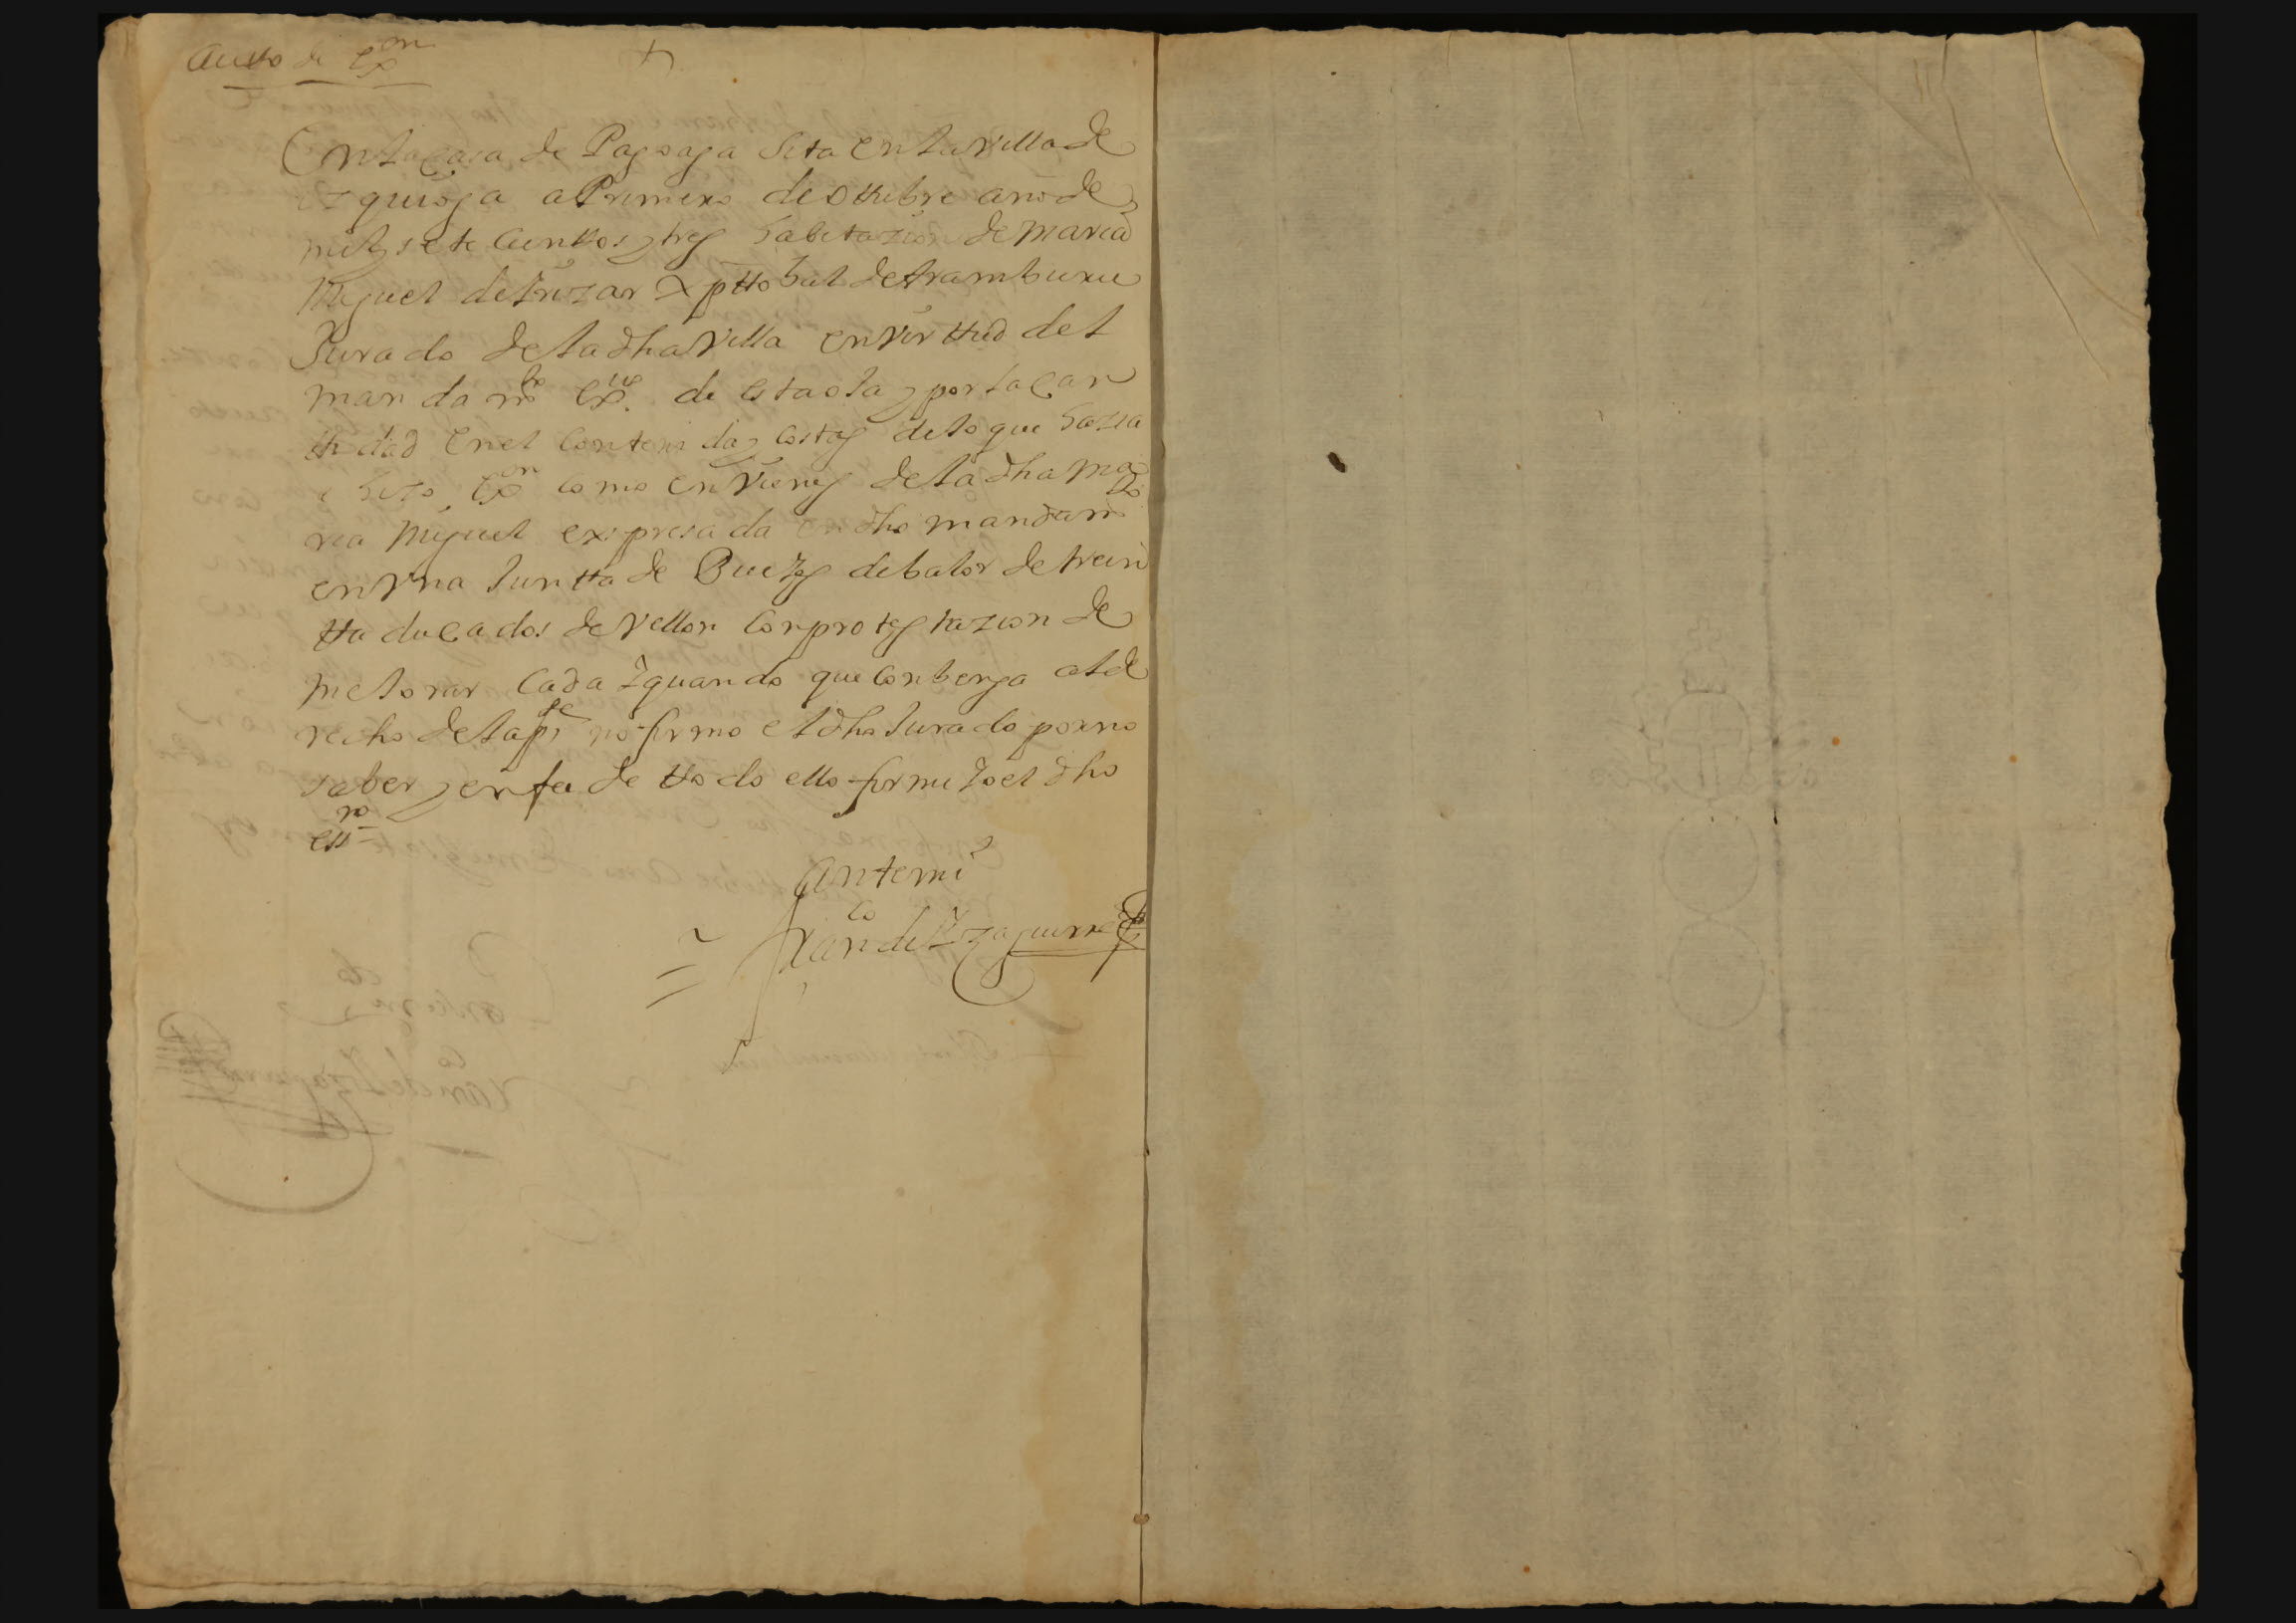 Autto de exon
+
En la Casa de Pagoaga sita en la Villa de
Ezquioga a Primero de ottubre año de
mil y sete cientos y tres habitazion de maria
Miguel de Yrizar Xpttobal de Aramburu
Jurado de la dha Villa en Virttud del
mandamto exuo de esta ola y por la Can
ttidad en el Contenida y costas de lo que hazia
e hizo exon como en Vienes de la dha ma
ria Miguel expresada en dho mandamto
en Vna Juntta de Bueyes de balor de trein
tta ducados de Vellon Con protestazion de
mejorar Cada Y quando que Conbenga al de
recho de la pte no firmo el dho Jurado por no
saber y en fee de ttodo ello firme Yo el dho
essno
Ante mi
Franco de Yzaguirre